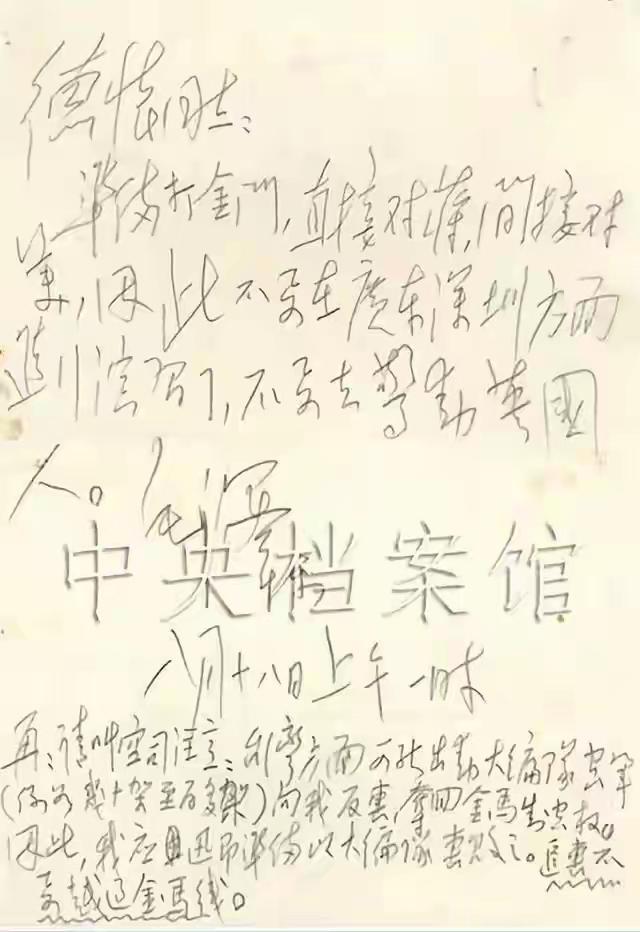 德怀同志：
準备打金门，直接对蒋，间接对
美，因此不要在廣东深圳方面
進行演习，不要去驚动英國
人。毛泽东
中央档案馆
八月十八日上午一时
再：请叫空司注意：台湾方面可能出动大编隊空军
（例如幾十架至百多架）向我反击，夺回金马制空权。
因此，我应迅即準备以大编隊击败之。追击不
要越过金马线。